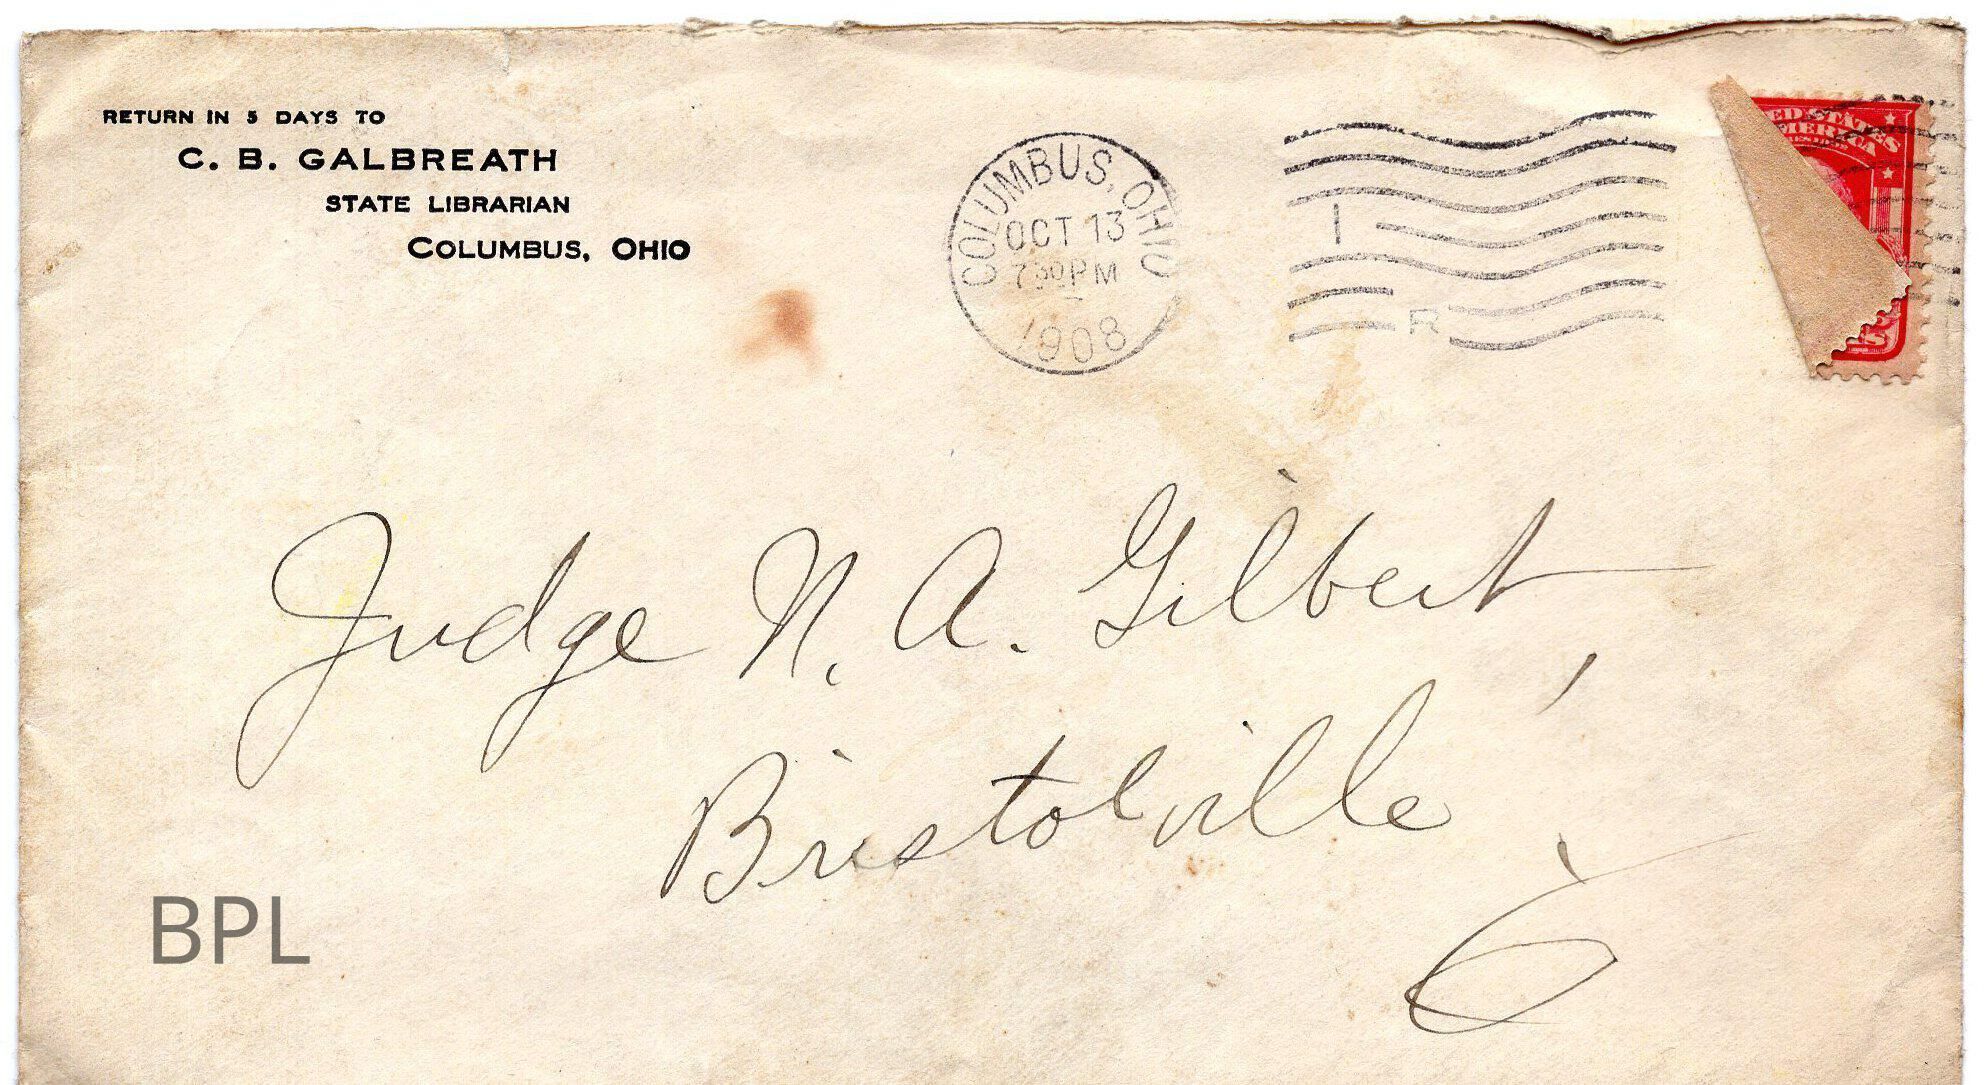 RETURN IN 5 DAYS TO
C. B. GALBREATH
STATE LIBRARIAN
COLUMBUS, OHIO
COLUMBUS, OHIO
OCT 13
7 30 PM
1908
1
R
Judge N. A. Gilbert,
Bristolville
O
BPL